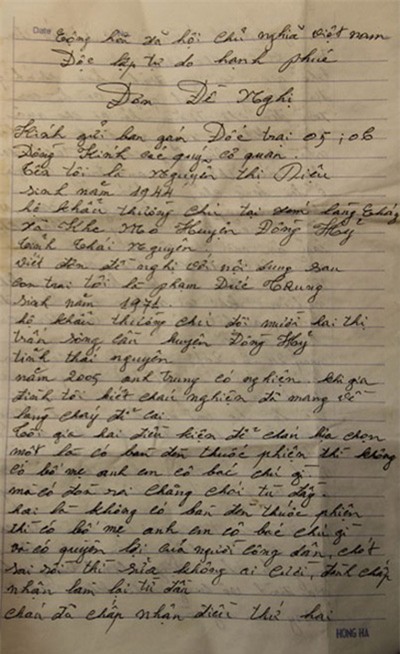 Date
Cộng hòa xã hội chủ nghĩa Việt nam
Độc lập tự do hạnh phúc
Đơn Đề Nghị
Kính gửi ban giám Đốc trại 05; 06
Đồng Kính các quý cơ quan.
Tên tôi là Nguyễn thị Niệu
sinh năm 1944
hộ khẩu thường chú tại xóm làng
xã Khe Mo Huyện Đồng Hỷ
tỉnh Thái Nguyên.
viết đơn đề nghị với nội dung sau
con trai tôi là phạm Đức Trung
sinh năm 1971.
hộ khẩu thường chú tổ mười hai thị
trấn sông cầu huyện Đồng Hỷ
tỉnh thái nguyên
năm 2005 anh trung có nghiện khi gia
đình tôi biết cháu nghiện đã mang về
làng cháy để cai
Tôi gia hai điều kiện để cháu lựa chọn
một là có bàn đèn thuốc phiện thì không
có bố mẹ anh em cô bác chú gì
mà có đòn roi
hai là không có bàn đèn thuốc phiện
thì có bố mẹ anh em cô bác chú gì
và có quyền lợi của người công dân, chót
sai rồi thì sửa không ai cười, chấp
nhận làm lại từ đầu
cháu đã chấp nhận điều thứ hai
HONG HA